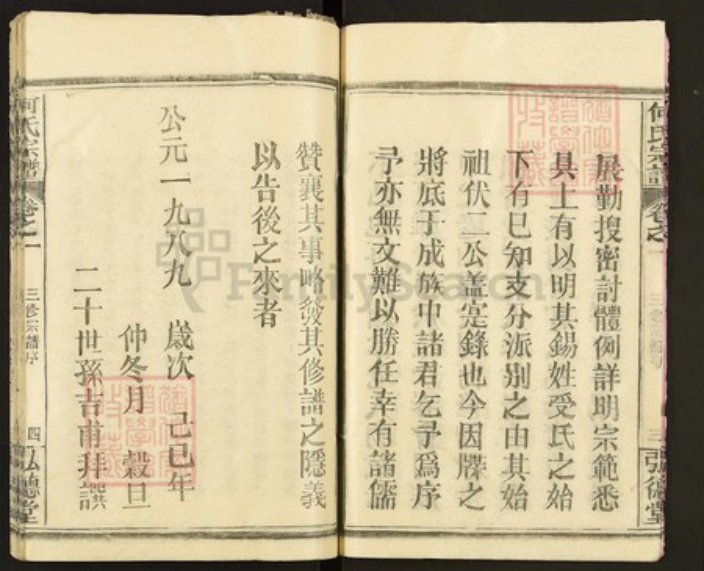 何氏宗譜
卷之一
三修宗譜序
三
弘德堂
展勤搜密討體例詳明宗範悉
具上有以明其錫姓受氏之始
下有已知支分派別之由其始
祖伏二公盖寔錄也今因牒之
將底于成族中諸君乞予爲序
予亦無文難以勝任幸有諸儒
贊襄其事略發其修譜之隱義
以告後之來者
公元一九八九 歲次 己巳年
仲冬月 穀旦
二十世孫吉甫拜譔
何氏宗譜
卷之一
三修宗譜序
四
弘德堂
FamilySearch